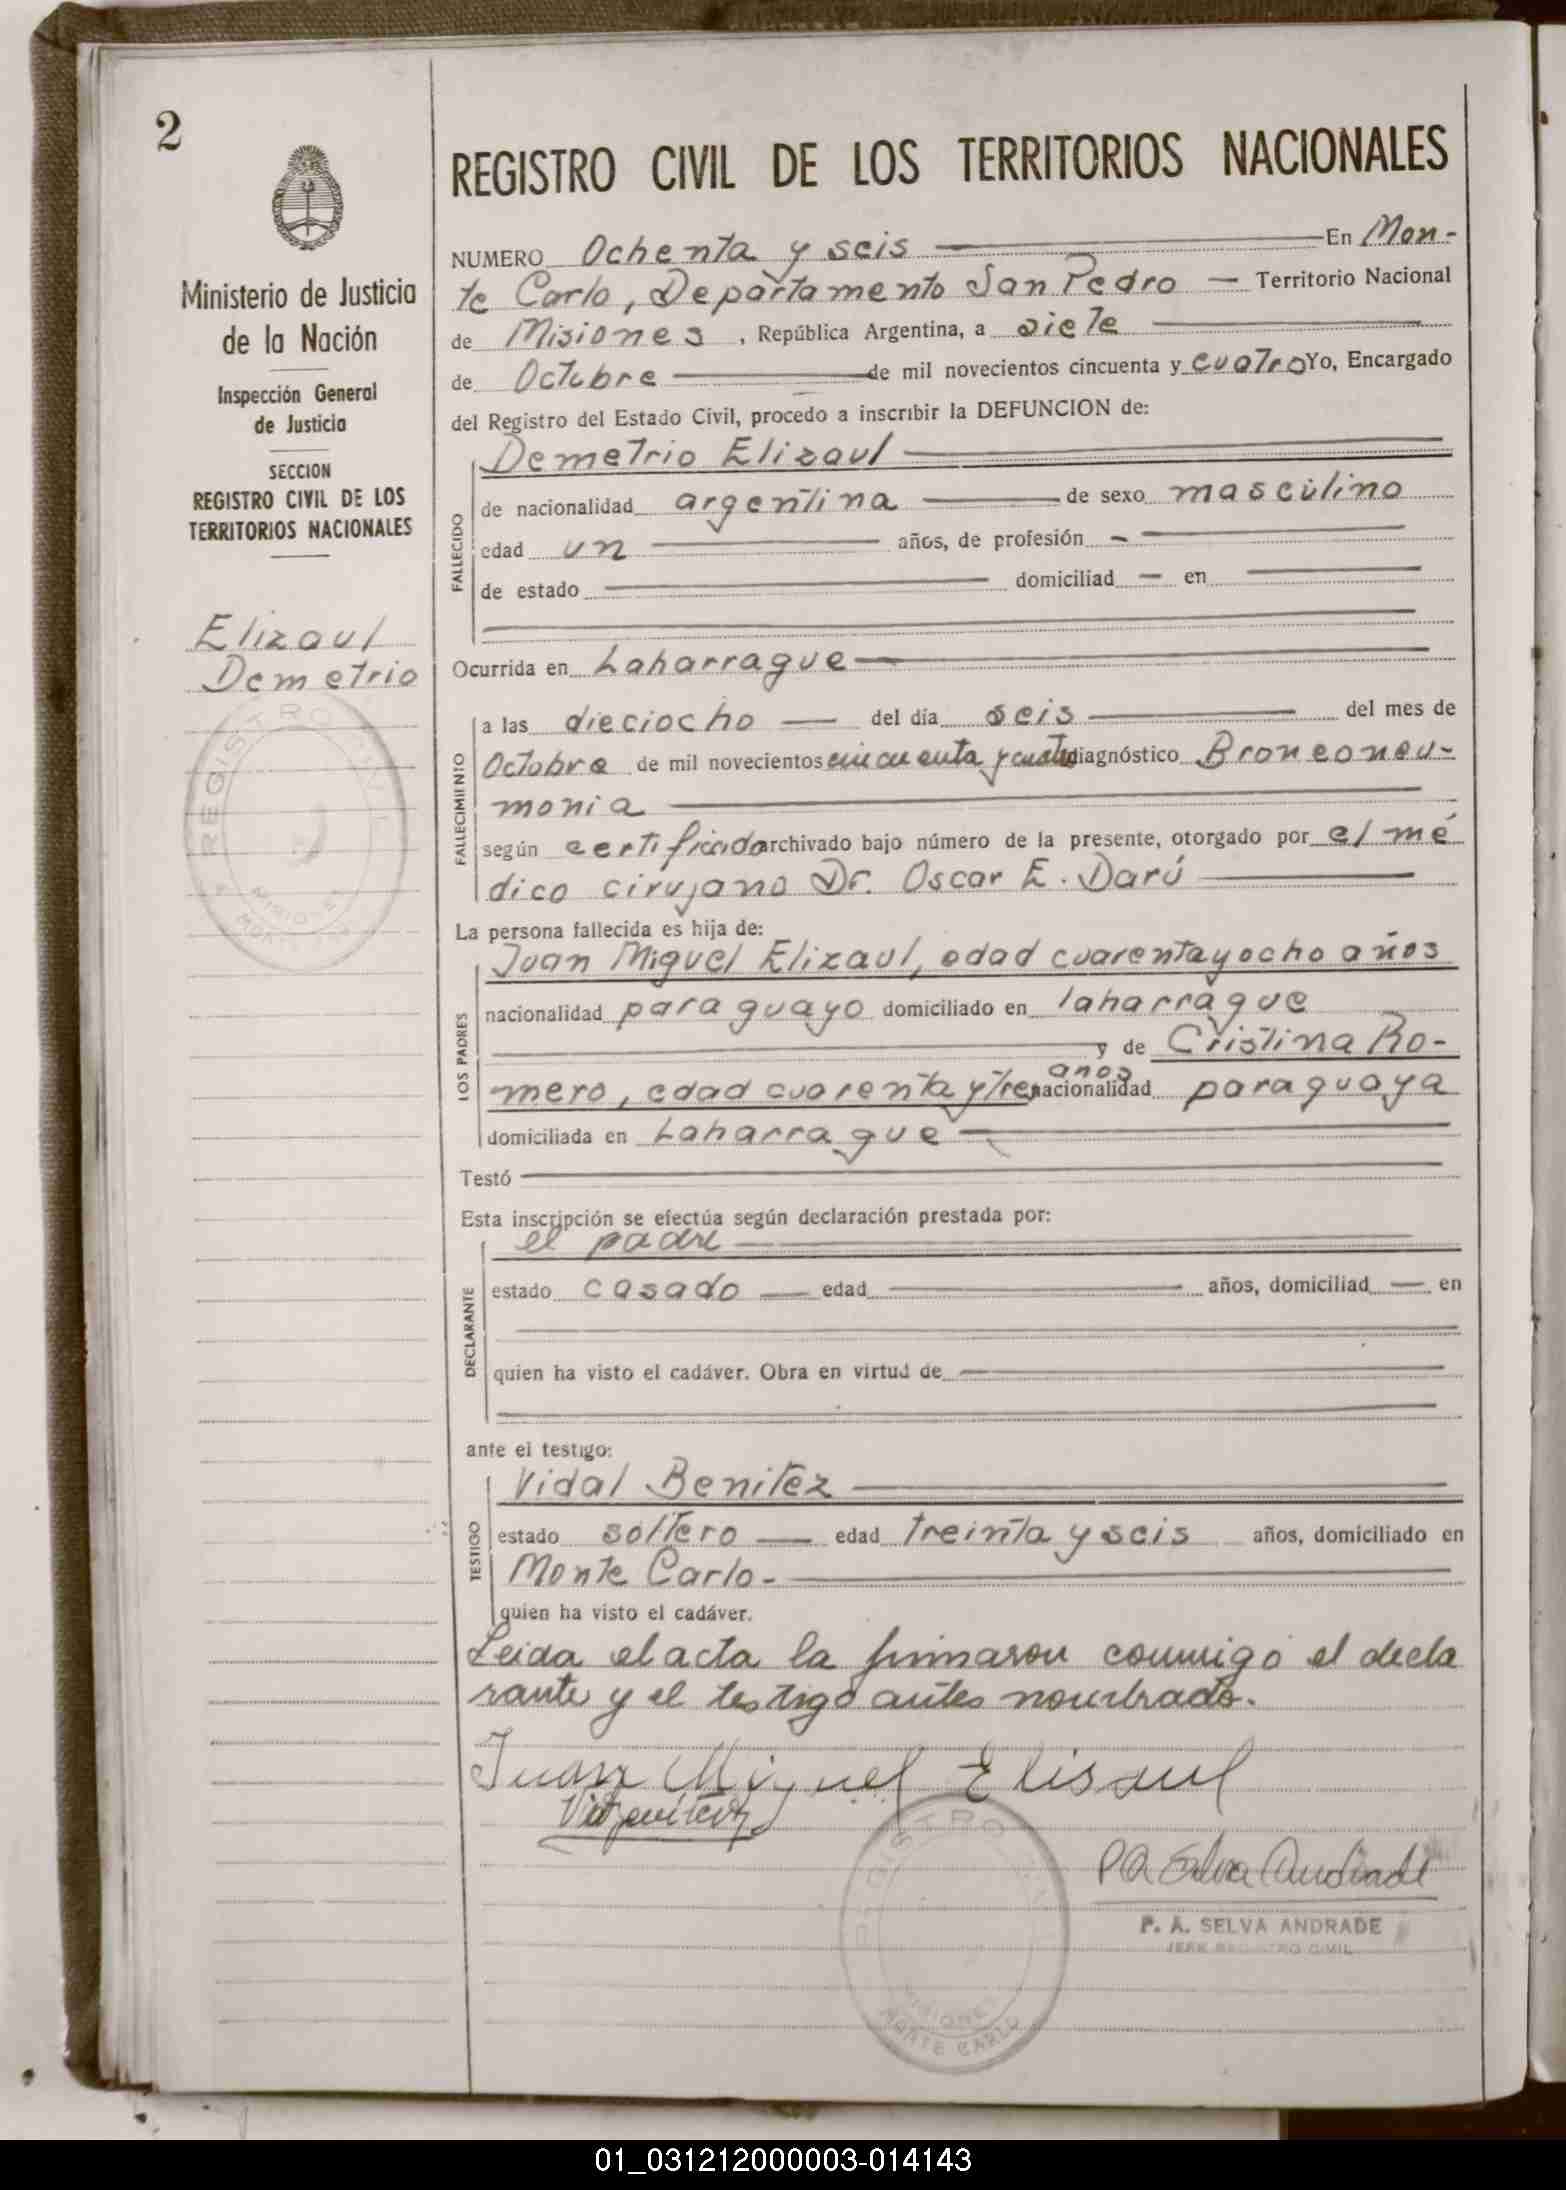 2
Ministerio de Justicia
de la Nación
Inspección General
de Justicia
SECCION
REGISTRO CIVIL DE LOS
TERRITORIOS NACIONALES
Elizaul
Demetrio
REGISTRO CIVIL
MISIONES
MONTE CARLO
REGISTRO CIVIL DE LOS TERRITORIOS NACIONALES
NUMERO Ochenta y seis En Mon-
te Carlo, Departamento San Pedro — Territorio Nacional
de Misiones, República Argentina, a siete
de Octubre de mil novecientos cincuenta y cuatro Yo, Encargado
del Registro del Estado Civil, procedo a inscribir la DEFUNCION de:
FALLECIDO
Demetrio Elizaul
de nacionalidad argentina de sexo masculino
edad un años, de profesión -
de estado domiciliad — en
Ocurrida en Laharrague
FALLECIMIENTO
a las dieciocho — del día seis del mes de
Octubre de mil novecientos cincuenta y cuatro diagnóstico Bronconeu-
monia
según certificado archivado bajo número de la presente, otorgado por el mé
dico cirujano Dr. Oscar E. Darú
La persona fallecida es hija de:
LOS PADRES
Juan Miguel Elizaul, edad cuarenta y ocho años
nacionalidad paraguayo domiciliado en laharrague
y de Cristina Ro-
mero, edad cuarenta y tres años nacionalidad paraguaya
domiciliada en Laharrague
Testó
Esta inscripción se efectúa según declaración prestada por:
DECLARANTE
el padre
estado casado — edad años, domiciliad — en
quien ha visto el cadáver. Obra en virtud de
ante el testigo:
TESTIGO
Vidal Benitez
estado soltero — edad treinta y seis años, domiciliado en
Monte Carlo-
quien ha visto el cadáver.
Leida el acta la firmaron conmigo el decla
rante y el testigo antes nombrado.
Juan Miguel Elisaul
PA Selva Andrade
REGISTRO CIVIL
MISIONES
MONTE CARLO
P. A. SELVA ANDRADE
JEFE REGISTRO CIVIL
01_031212000003-014143